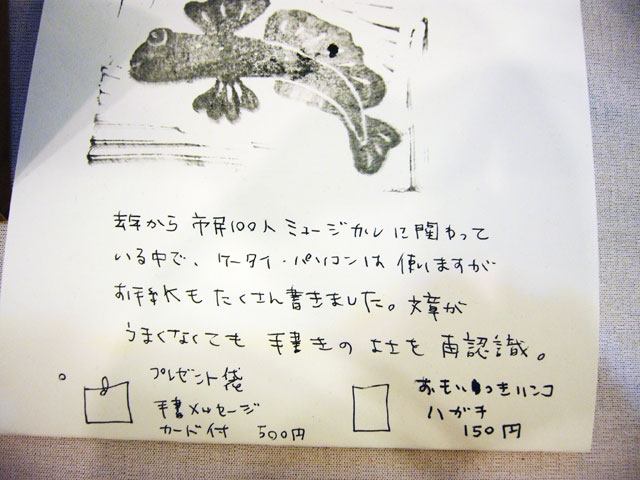 去年から 市民100人ミュージカルに関わって
いる中で、ケータイ・パソコンは使いますが
お手紙もたくさん書きました。文章が
うまくなくても 手書きのよさを再認識。
プレゼント袋
手書メッセージ
カード付 500円
おもいつきハンコ
ハガキ
150円